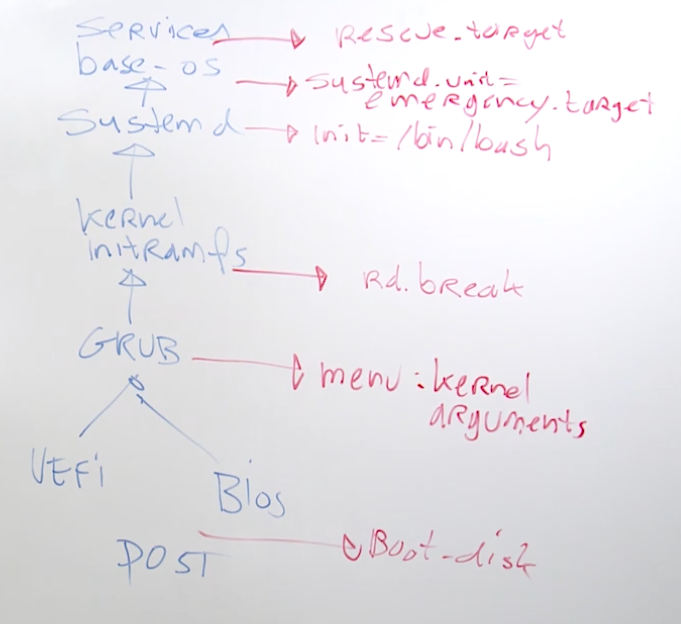 Services → Rescue.target
base-os → Systemd.unit=
emergency.target
Systemd → init=/bin/bash
Kernel
initRamfs → Rd.break
GRUB → menu:kernel
aRguments
UEFi
Bios
POST → Boot-disk